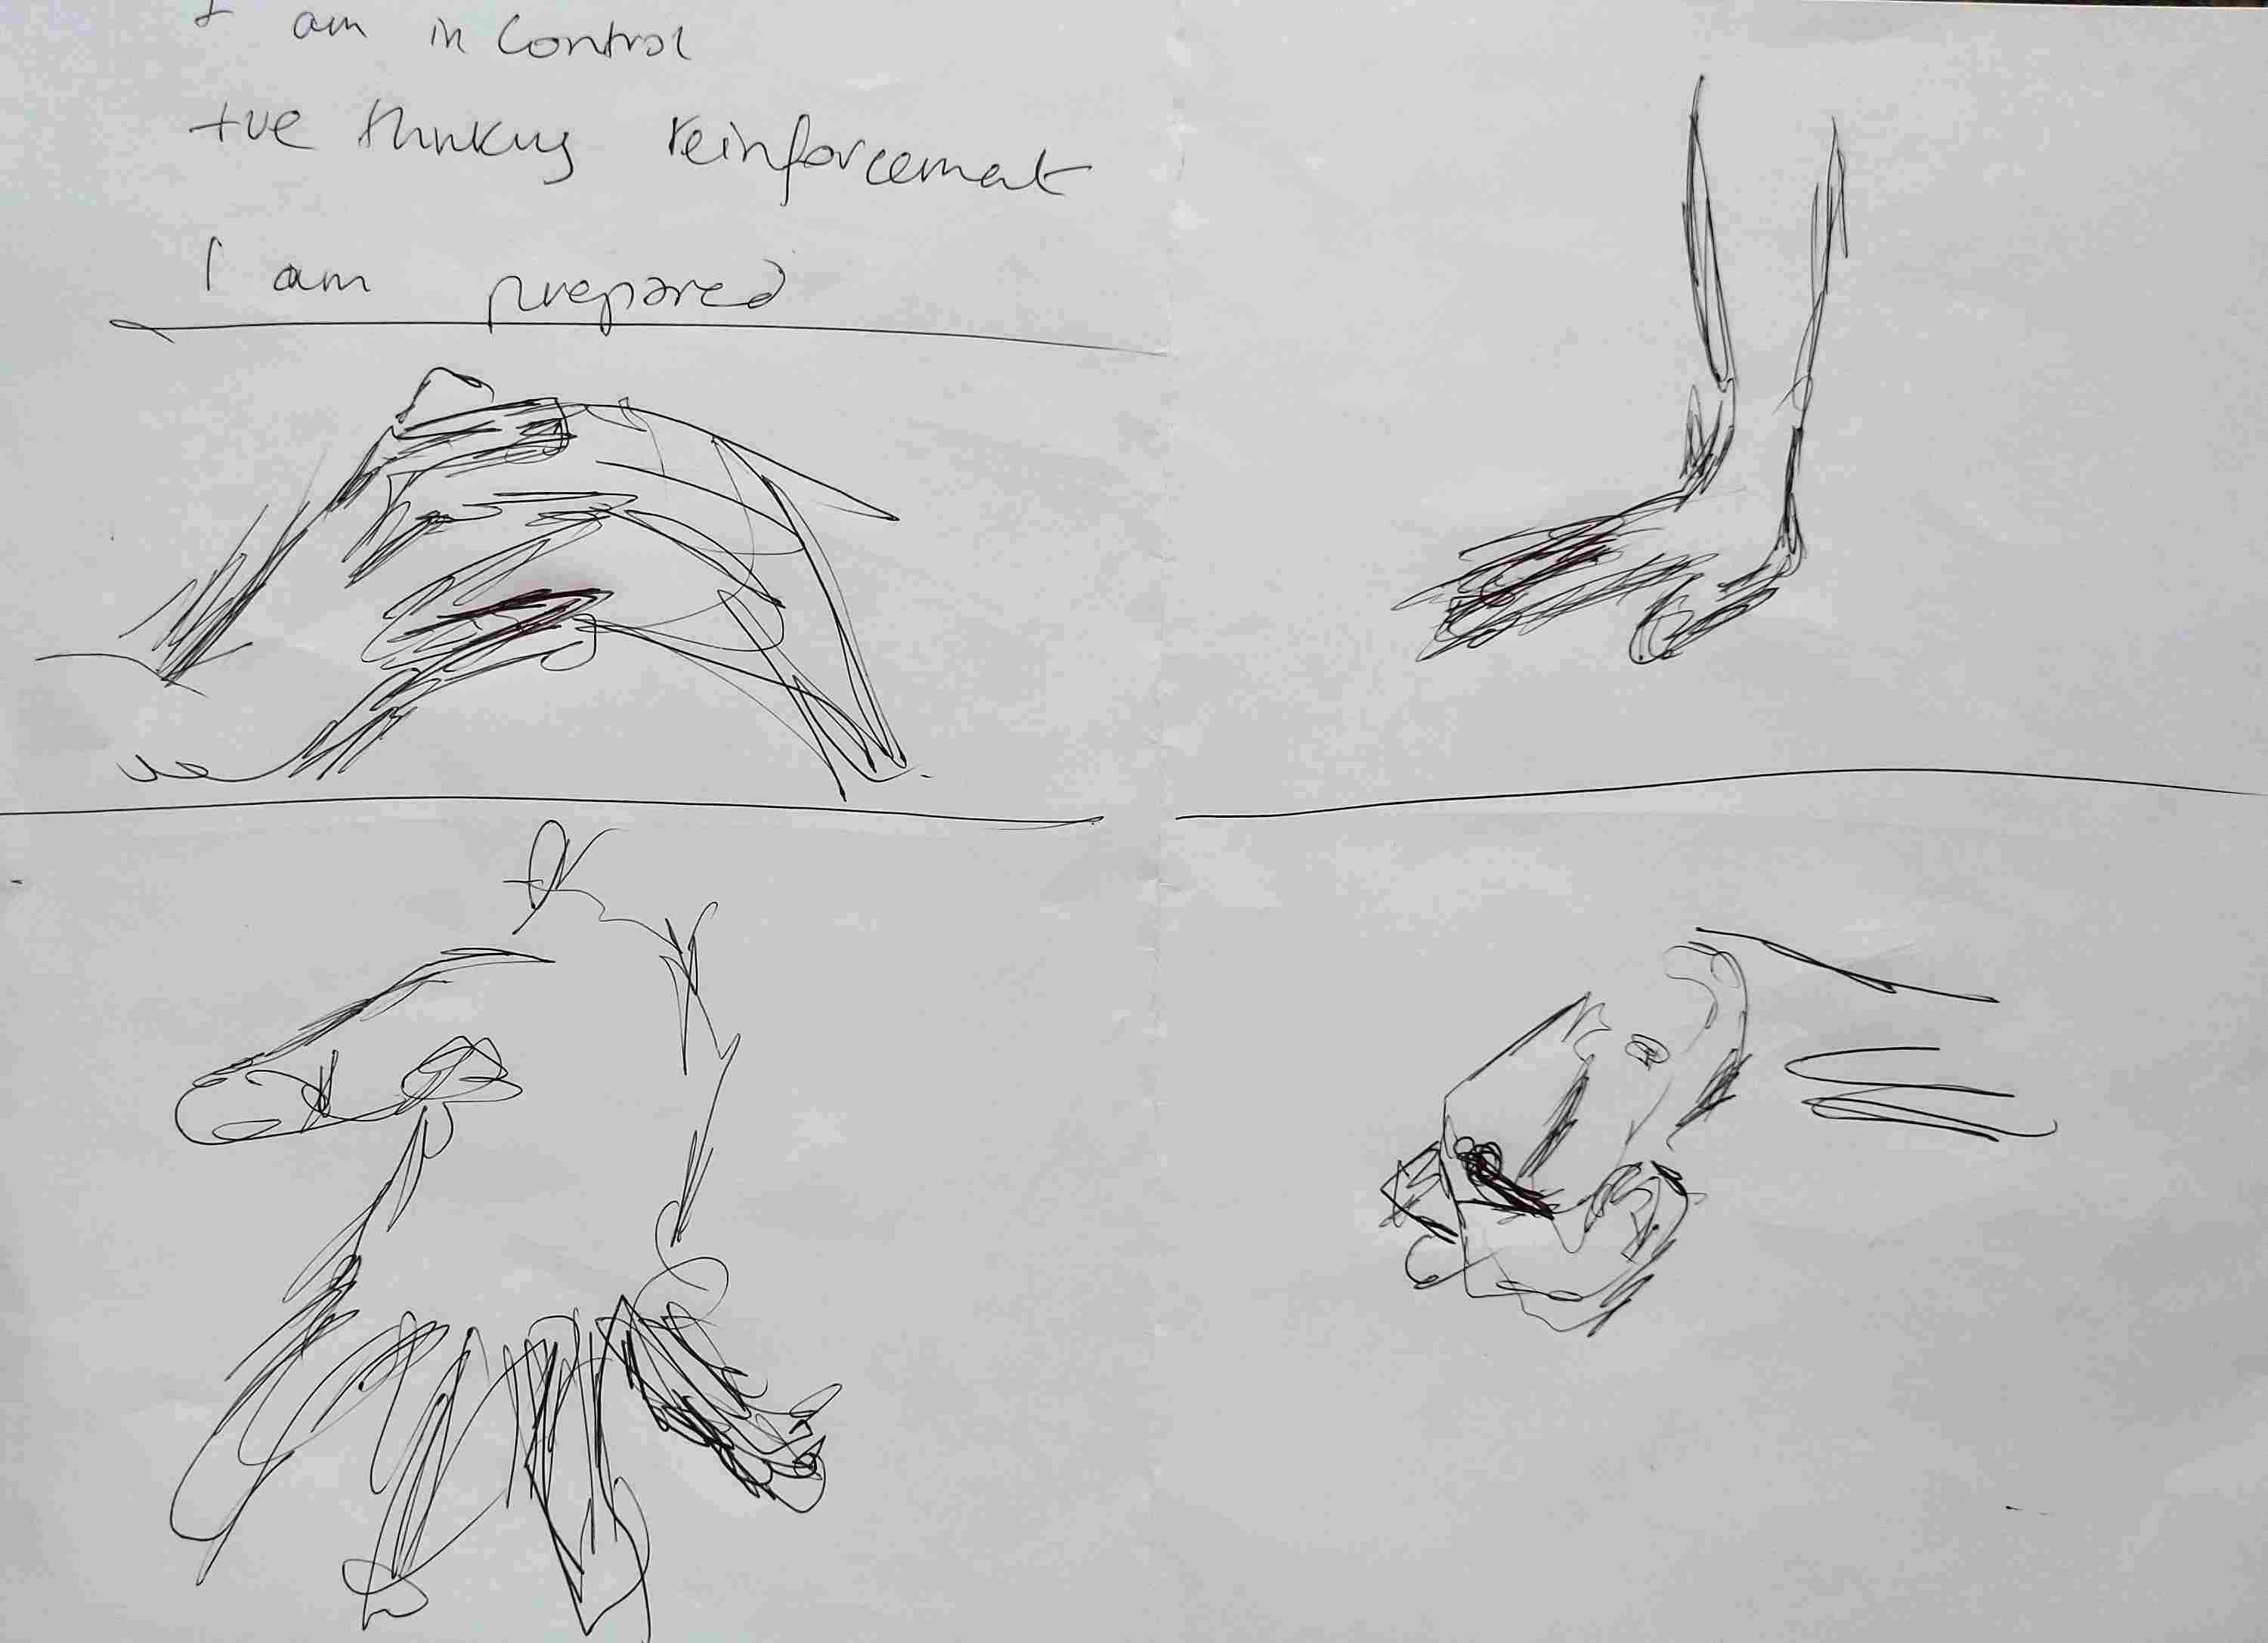 I am in control
+ve thinking reinforcement
I am prepared